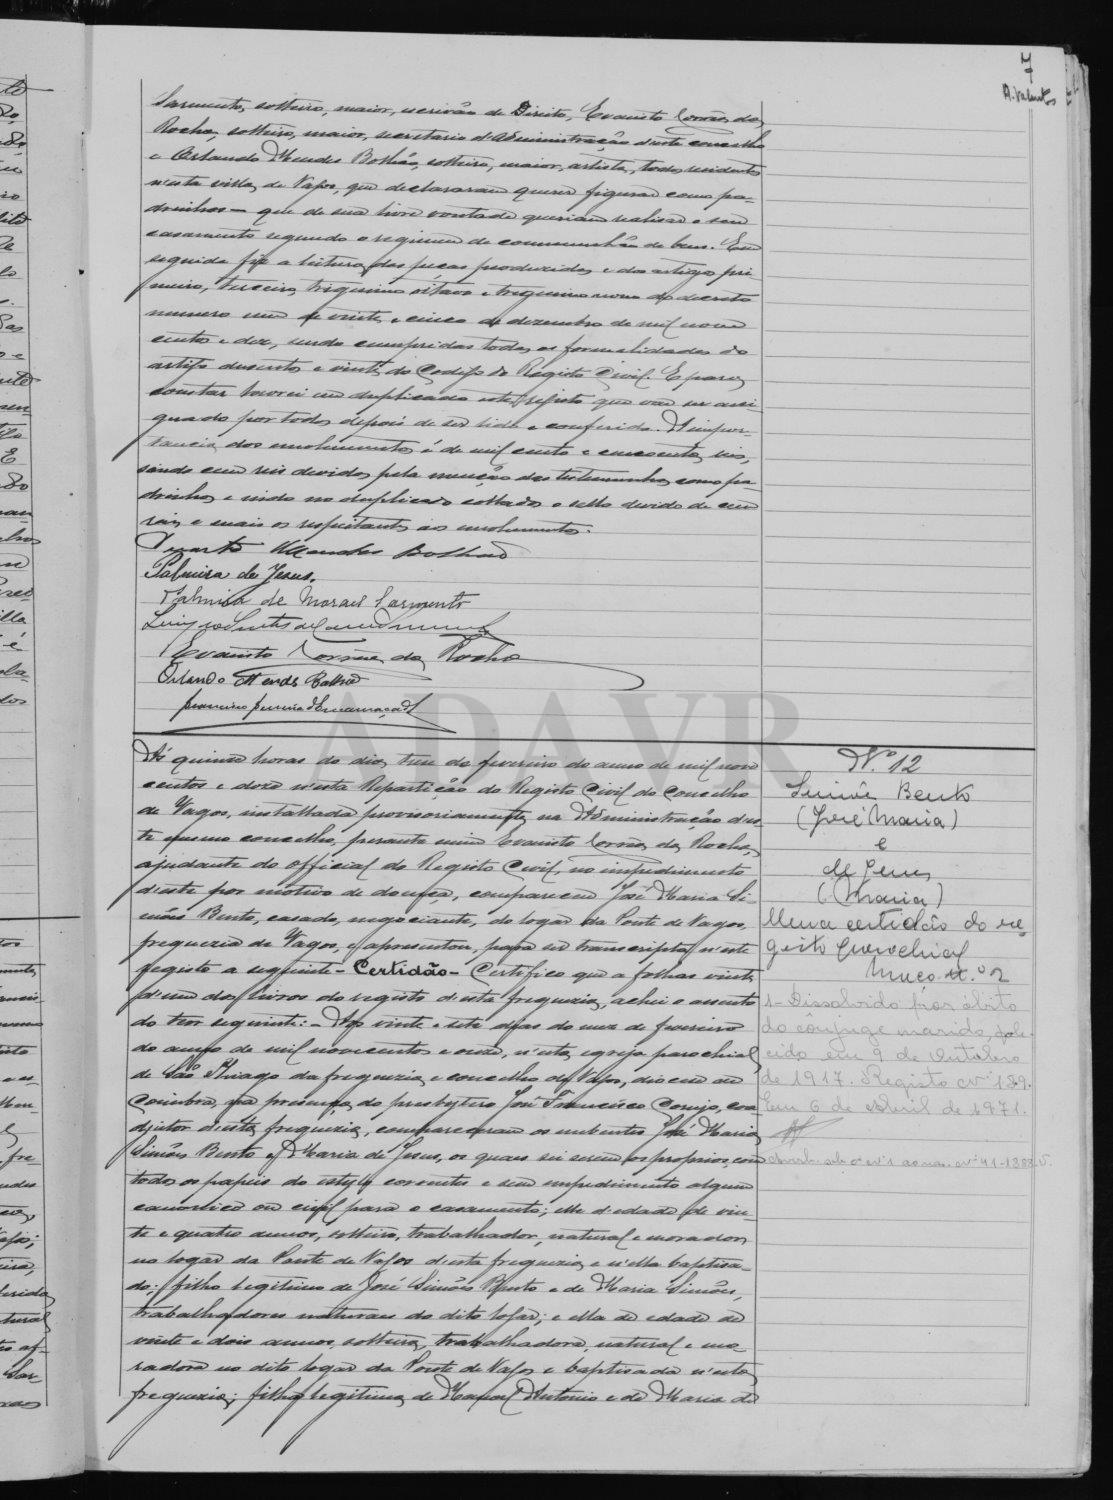 7
A. Valentes
Sarmento, solteiro, maior, escrivão de Direito, Evaristo Corrêa da
Rocha, solteiro, maior, secretario d'Administração d'este concelho
e Orlando Mendes Bolhão, solteiro, maior, artista, todos residentes
n'esta villa de Vagos, que declararam querer figurar como pa-
drinhos — que de sua livre vontade queriam realisar o seu
casamento segundo o regimen de communhão de bens. Em
seguida fiz a leitura das peças produzidas e dos artigos pri
meiro, terceiro, trigesimo oitavo e trigesimo nono do decreto
numero um de vinte e cinco de dezembro de mil nove
centos e dez, sendo cumpridas todas as formalidades do
artigo duzentos e vinte do Codigo do Registo Civil. E para
constar lavrei em duplicado este registo que vae ser assi
gnado por todos depois de ser lido e conferido. A impor-
tancia dos emolumentos é de mil cento e cincoenta reis,
sendo cem reis devidos pela menção das testemunhas como pa
drinhos e indo no duplicado collados o sello devido de cem
reis e mais os respeitantes aos emolumentos.
Duarte Mendes Bolhão
Palmira de Jesus.
Palmira de Moraes Sarmento
Evaristo Corrêa da Rocha
Orlando Mendes Bolhão
Francisco Pereira d'Encarnação
ADAVR
Ás quinze horas do dia treze de fevereiro do anno de mil nove
centos e doze n'esta Repartição do Registo Civil do Concelho
de Vagos, installada provisoriamente na Administração des-
te mesmo concelho, perante mim Evaristo Corrêa da Rocha,
ajudante do official do Registo Civil, no impedimento
d'este por motivo de doença, compareceu José Maria Si
mões Bento, casado, negociante, do logar da Ponte de Vagos,
freguezia de Vagos, e apresentou, para ser transcripta n'este
registo a seguinte – Certidão – Certifico que a folhas vinte
d'um dos livros do registo d'esta freguezia, achei o assento
do teor seguinte: – Aos vinte e sete dias do mez de fevereiro
do anno de mil novecentos e onze, n'esta egreja parochial
de São Thiago da freguezia e concelho de Vagos, diocese de
Coimbra, na presença do presbytero José Francisco Corujo, coa
djutor d'esta freguezia, compareceram os nubentes José Maria
Simões Bento e Maria de Jesus, os quaes sei serem os proprios, com
todos os papeis do estylo correntes e sem impedimento algum
canonico ou civil para o casamento; elle d'edade de vin-
te e quatro annos, solteiro, trabalhador, natural e morador
no logar da Ponte de Vagos d'esta freguezia e n'ella baptisa-
do; filho legitimo de José Simões Bento e de Maria Simões,
trabalhadores naturaes do dito logar; e ella de edade de
vinte e dois annos, solteira, trabalhadora, natural e mo-
radora no dito logar da Ponte de Vagos e baptisada n'esta
freguezia; filha legitima de Manoel Antonio e de Maria de
Nº 12
Simões Bento
(José Maria)
e
de Jesus
(Maria)
Uma certidão do re-
gisto parochial
Maço n.º 2
1 – Dissolvido por óbito
do cônjuge marido, fale-
cido em 9 de Outubro
de 1917. Registo nº 139.
Em 6 de Abril de 1971.